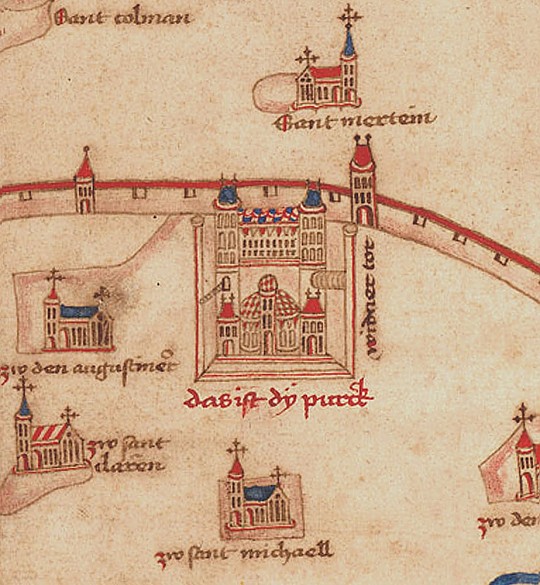 Sant colman
Sant mertein
widner tor
zw den augustinern
das ist dÿ purck
zw sant
claren
zw sant michaell
zw den